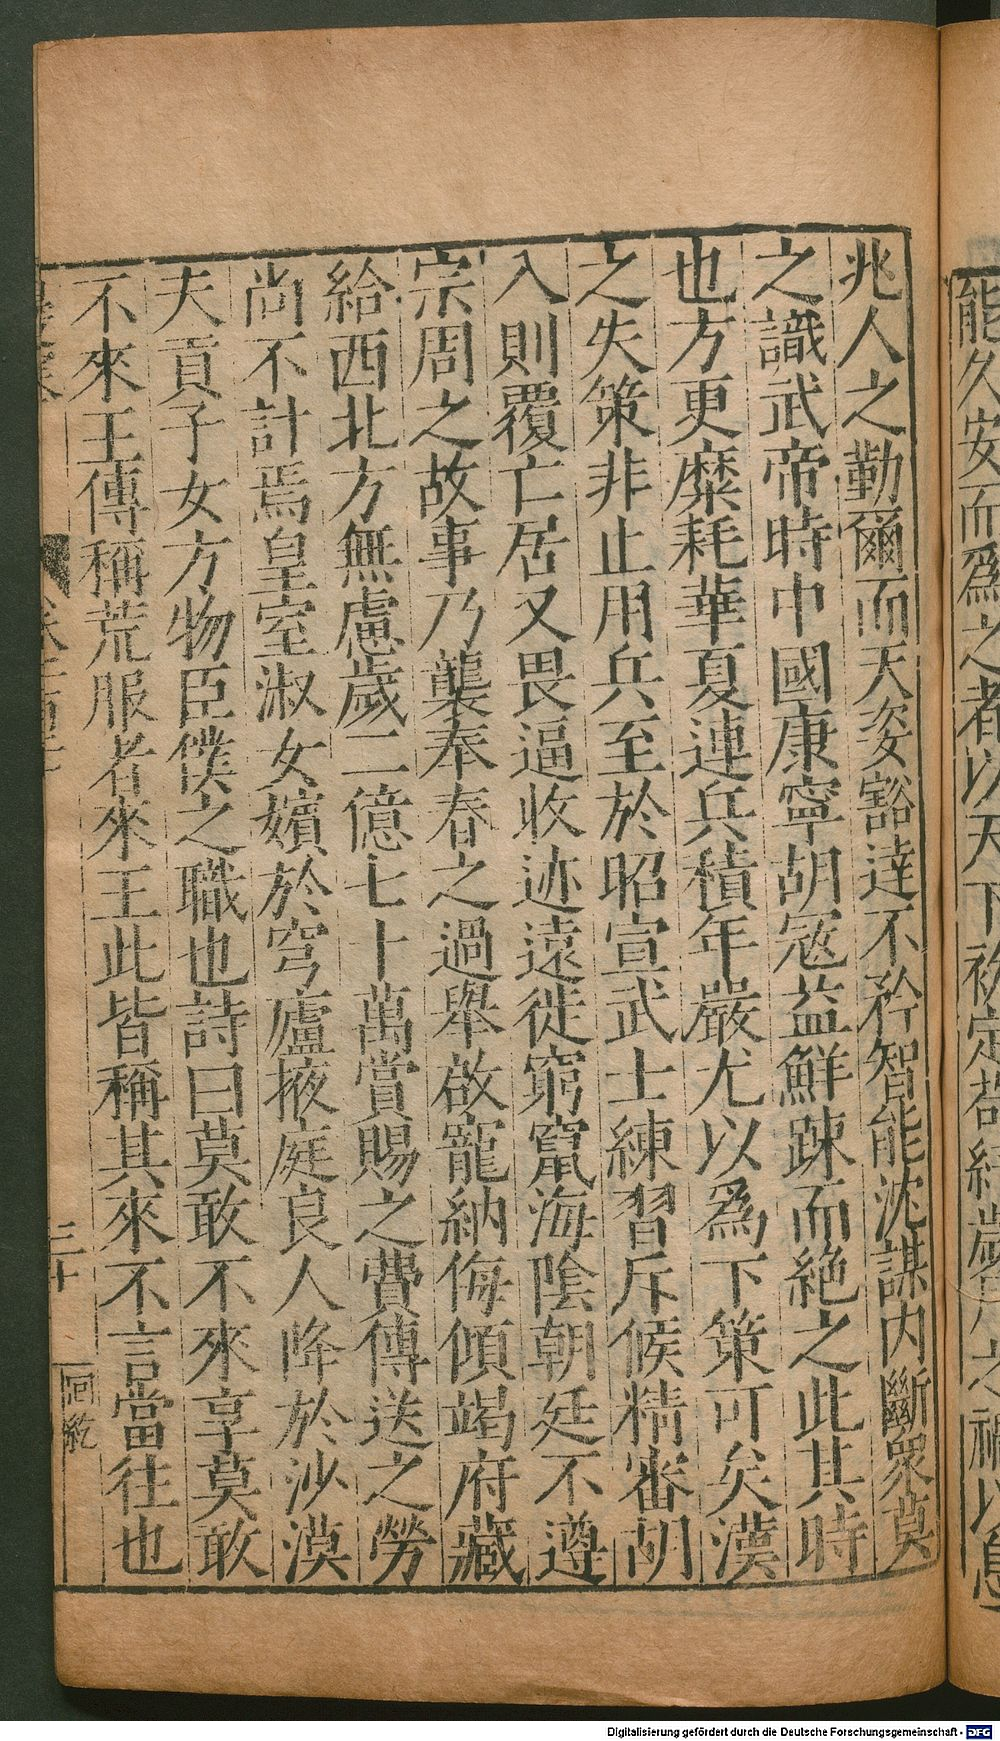 能久安而爲之者以天下初定
兆人之勤爾而天姿豁達不矜智能沈謀内斷衆莫
之識武帝時中國康寧胡寇益鮮踈而絶之此其時
也方更糜耗華夏連兵積年嚴尤以爲下策可矣漢
之失策非止用兵至於昭宣武士練習斥候精審胡
入則覆亡居又畏逼收迹遠徙窮竄海陰朝廷不遵
宗周之故事乃襲奉春之過舉啟寵納侮傾竭府藏
給西北方無慮歲二億七十萬賞賜之費傳送之勞
尚不計焉皇室淑女嬪於穹廬掖庭良人降於沙漠
夫貢子女方物臣僕之職也詩曰莫敢不來享莫敢
不來王傳稱荒服者來王此皆稱其來不言當往也
三十